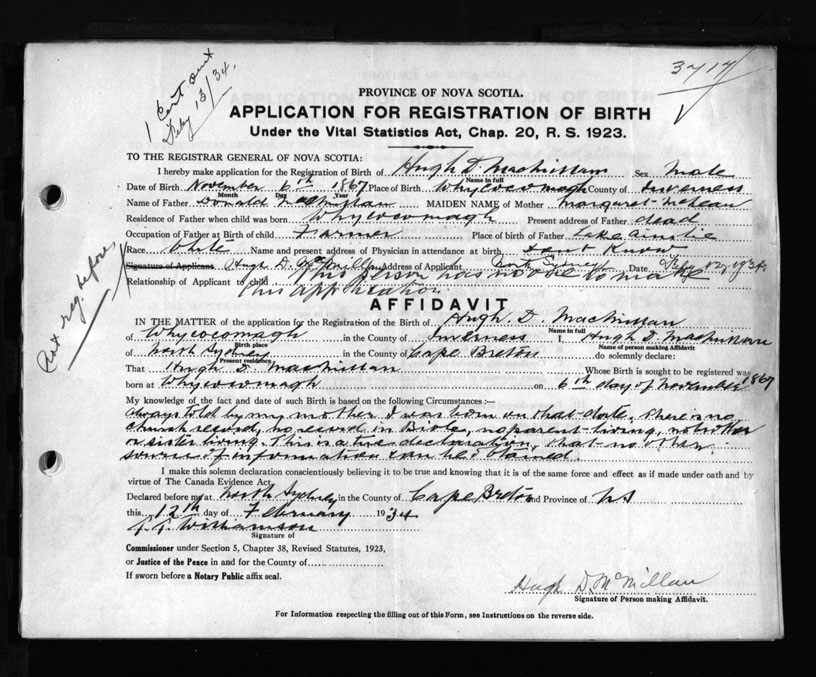 1 Cert out
Feby 13/34.
3717
PROVINCE OF NOVA SCOTIA.
APPLICATION FOR REGISTRATION OF BIRTH
Under the Vital Statistics Act, Chap. 20, R. S. 1923.
TO THE REGISTRAR GENERAL OF NOVA SCOTIA:
I hereby make application for the Registration of Birth of Hugh D. MacMillan Sex Male
Name in full
Date of Birth November 6th 1867 Place of Birth Whycocomagh County of Inverness
Month Day Year
Name of Father Donald MacMillan MAIDEN NAME of Mother Margaret McLean
Residence of Father when child was born Whycocomagh Present address of Father dead
Occupation of Father at Birth of child Farmer Place of birth of Father Lake Ainslie
Race White Name and present address of Physician in attendance at birth Don't Know
Signature of Applicant Hugh D. McMillan Address of Applicant North Sydney Date Feb. 12, 1934
Relationship of Applicant to child This person has no one to make
this application.
Cert reg. before,
AFFIDAVIT
IN THE MATTER of the application for the Registration of the Birth of Hugh D. MacMillan
Name in full
of Whycocomagh in the County of Inverness I, Hugh D. MacMillan
Birth place Name of person making Affidavit
of North Sydney in the County of Cape Breton do solemnly declare:
Present residence
That Hugh D. MacMillan Whose Birth is sought to be registered was
born at Whycocomagh on 6th day of November 1867
My knowledge of the fact and date of such Birth is based on the following Circumstances :—
Always told by my mother I was born on that date. There is no
church record, no record in Bible, no parent living, no brother
or sister living. This is a true declaration, that no other
source of information can be obtained.
I make this solemn declaration conscientiously believing it to be true and knowing that it is of the same force and effect as if made under oath and by
virtue of The Canada Evidence Act,
Declared before me at North Sydney in the County of Cape Breton and Province of NS
this 12th day of February 1934
Williamson
Signature of
Commissioner under Section 5, Chapter 38, Revised Statutes, 1923,
or Justice of the Peace in and for the County of
If sworn before a Notary Public affix seal.
Hugh D. McMillan
Signature of Person making Affidavit.
For Information respecting the filling out of this Form, see Instructions on the reverse side.